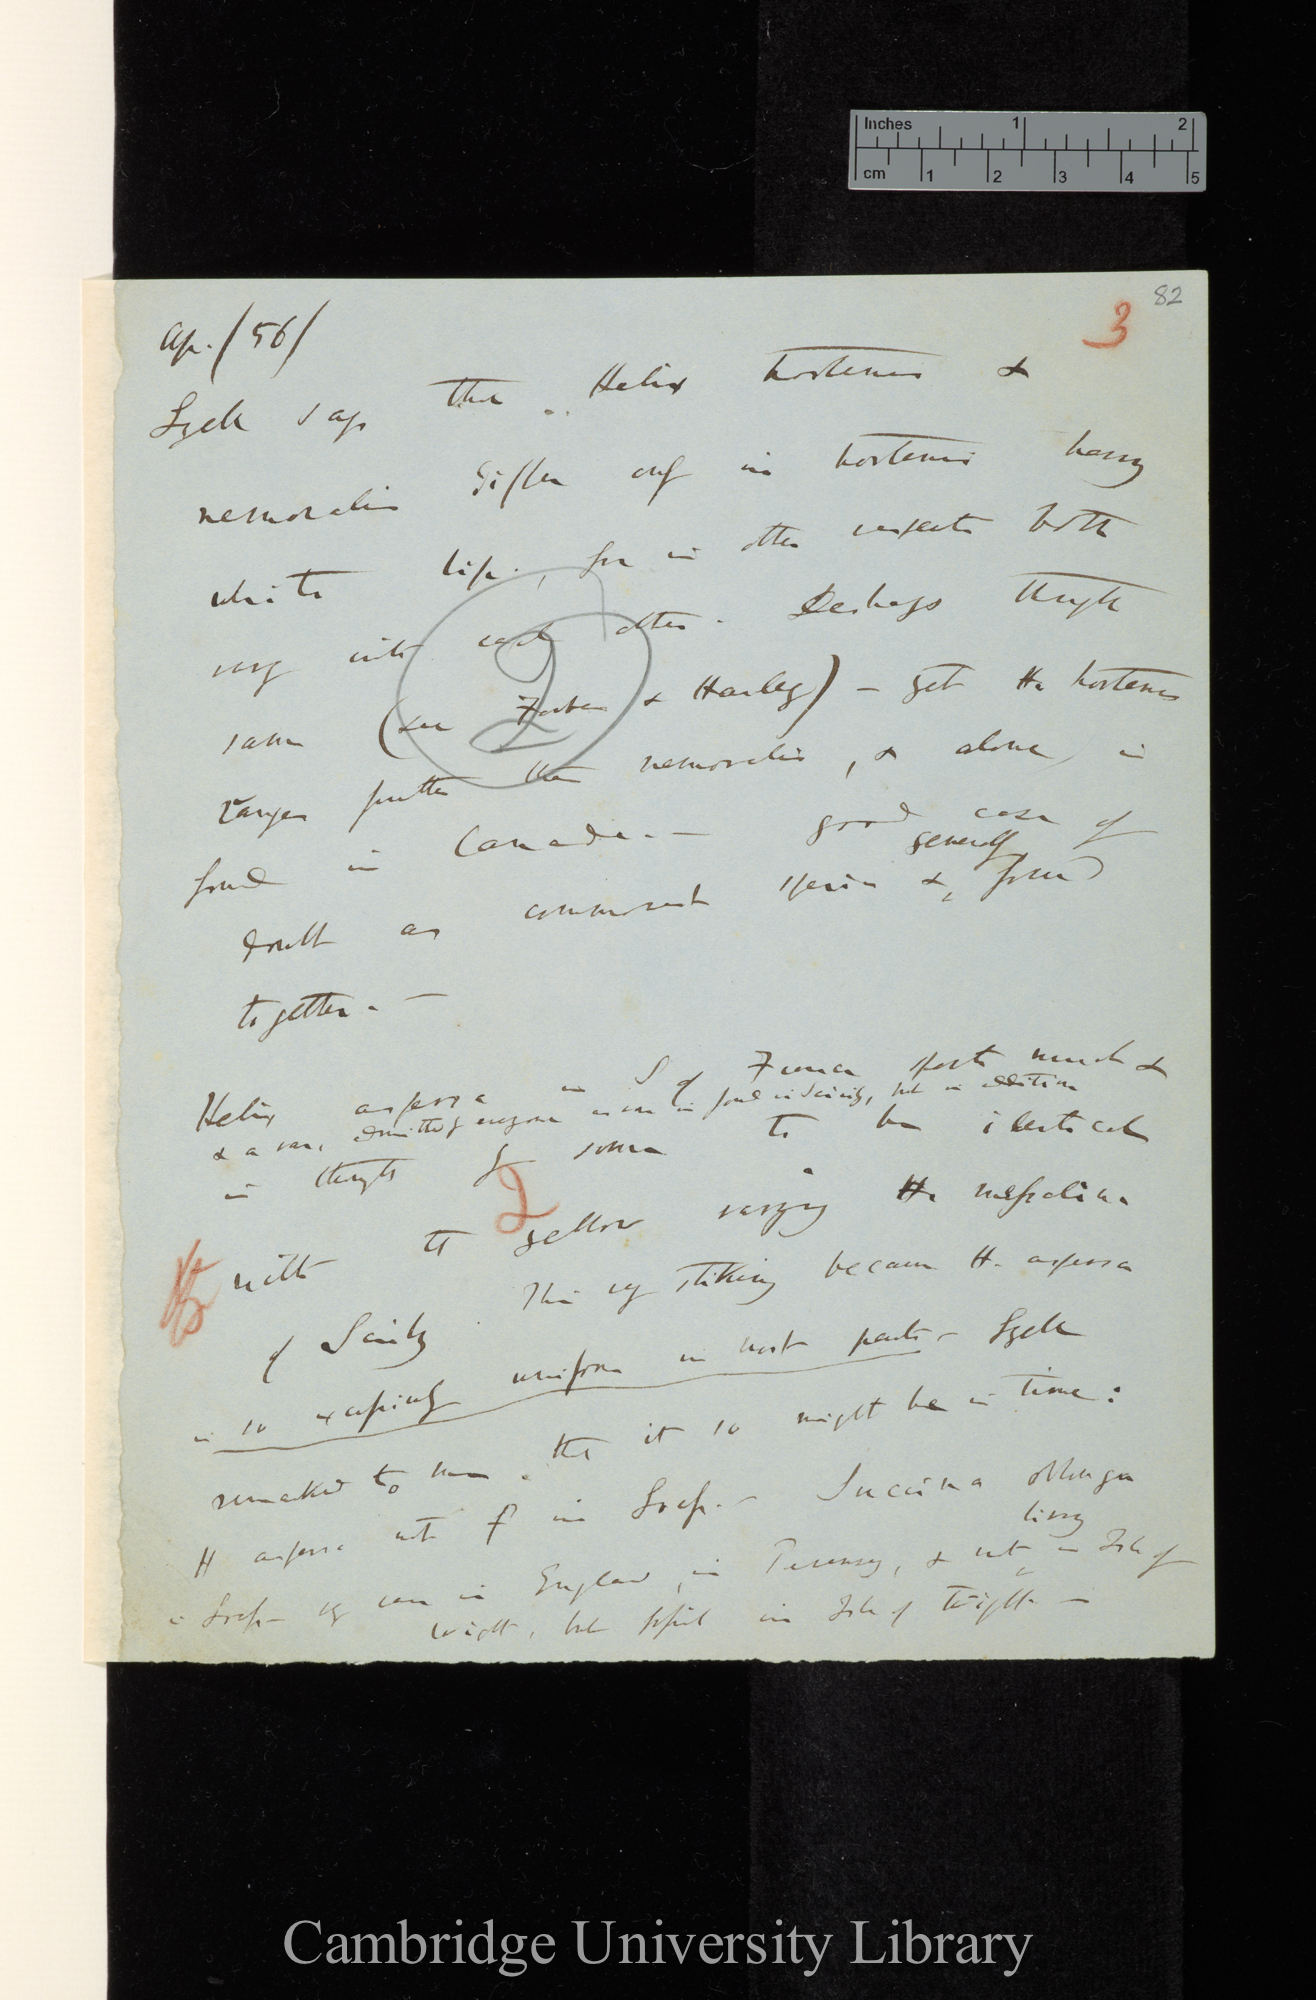 Inches 1 2
cm 1 2 3 4 5
82
3
Ap. /56/
Lyell says that Helix hortensis &
nemoralis differ only in hortensis having
white lip., for in other respects both
vary into each other. Perhaps thought
same (see Forbes & Hanley) — yet H. hortensis
ranges further than nemoralis, & alone, in
found in Canada. — good case of
doubt as commonest species & generally found
together. —
2
Helix aspersa in S of France sports much &
& a var. admitted by everyone as var is found in Sicily, but in addition
in thought by some to be identical
2
with the yellow varying H. mespalina
of Sicily. This very striking because H. aspersa
is so excessively uniform in most parts — Lyell
remarked to me that it so might be in time:
H aspersa not f in Loess. — Succinea oblonga
in Loess — very rare in England, in Pevensey, & not living in Isle of
Wight, but fossil in Isle of Wight —
Cambridge University Library